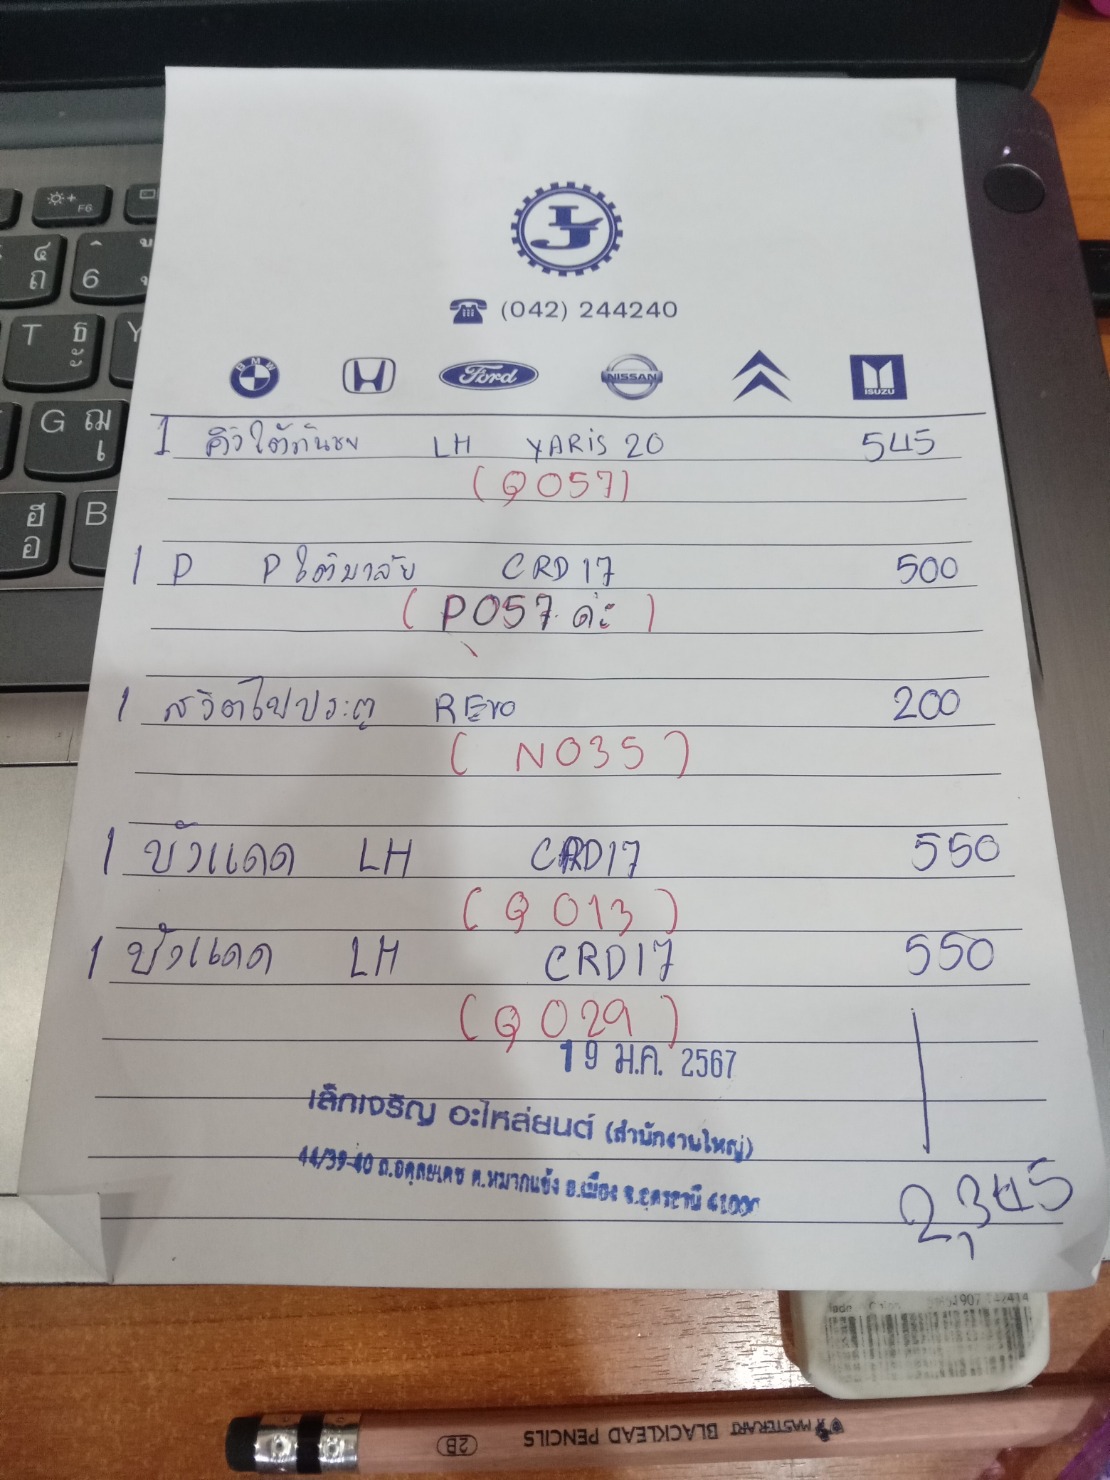 (042) 244240
BMW Ford NISSAN ISUZU
1 คิ้วใต้กันชน LH YARIS 20 545
(Q057)
1 P P ใต้มาลัย CRD 17 500
(P057 ค่ะ)
1 สวิตไฟประตู REVO 200
(N035)
1 บังแดด LH CRD17 550
(Q013)
1 บังแดด LH CRD17 550
(Q029)
19 ม.ค. 2567
เล็กเจริญ อะไหล่ยนต์ (สำนักงานใหญ่)
44/39-40 ถ.อดุลยเดช ต.หมากแข้ง อ.เมือง จ.อุดรธานี 41000
2,345
F6
6 ถ
T ธ Y
G ฌ เ
ฮ อ B
MASTERART BLACKLEAD PENCILS 2B